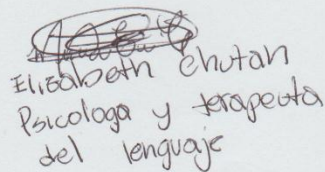 Elizabeth Chutan
Psicologa y terapeuta
del lenguaje